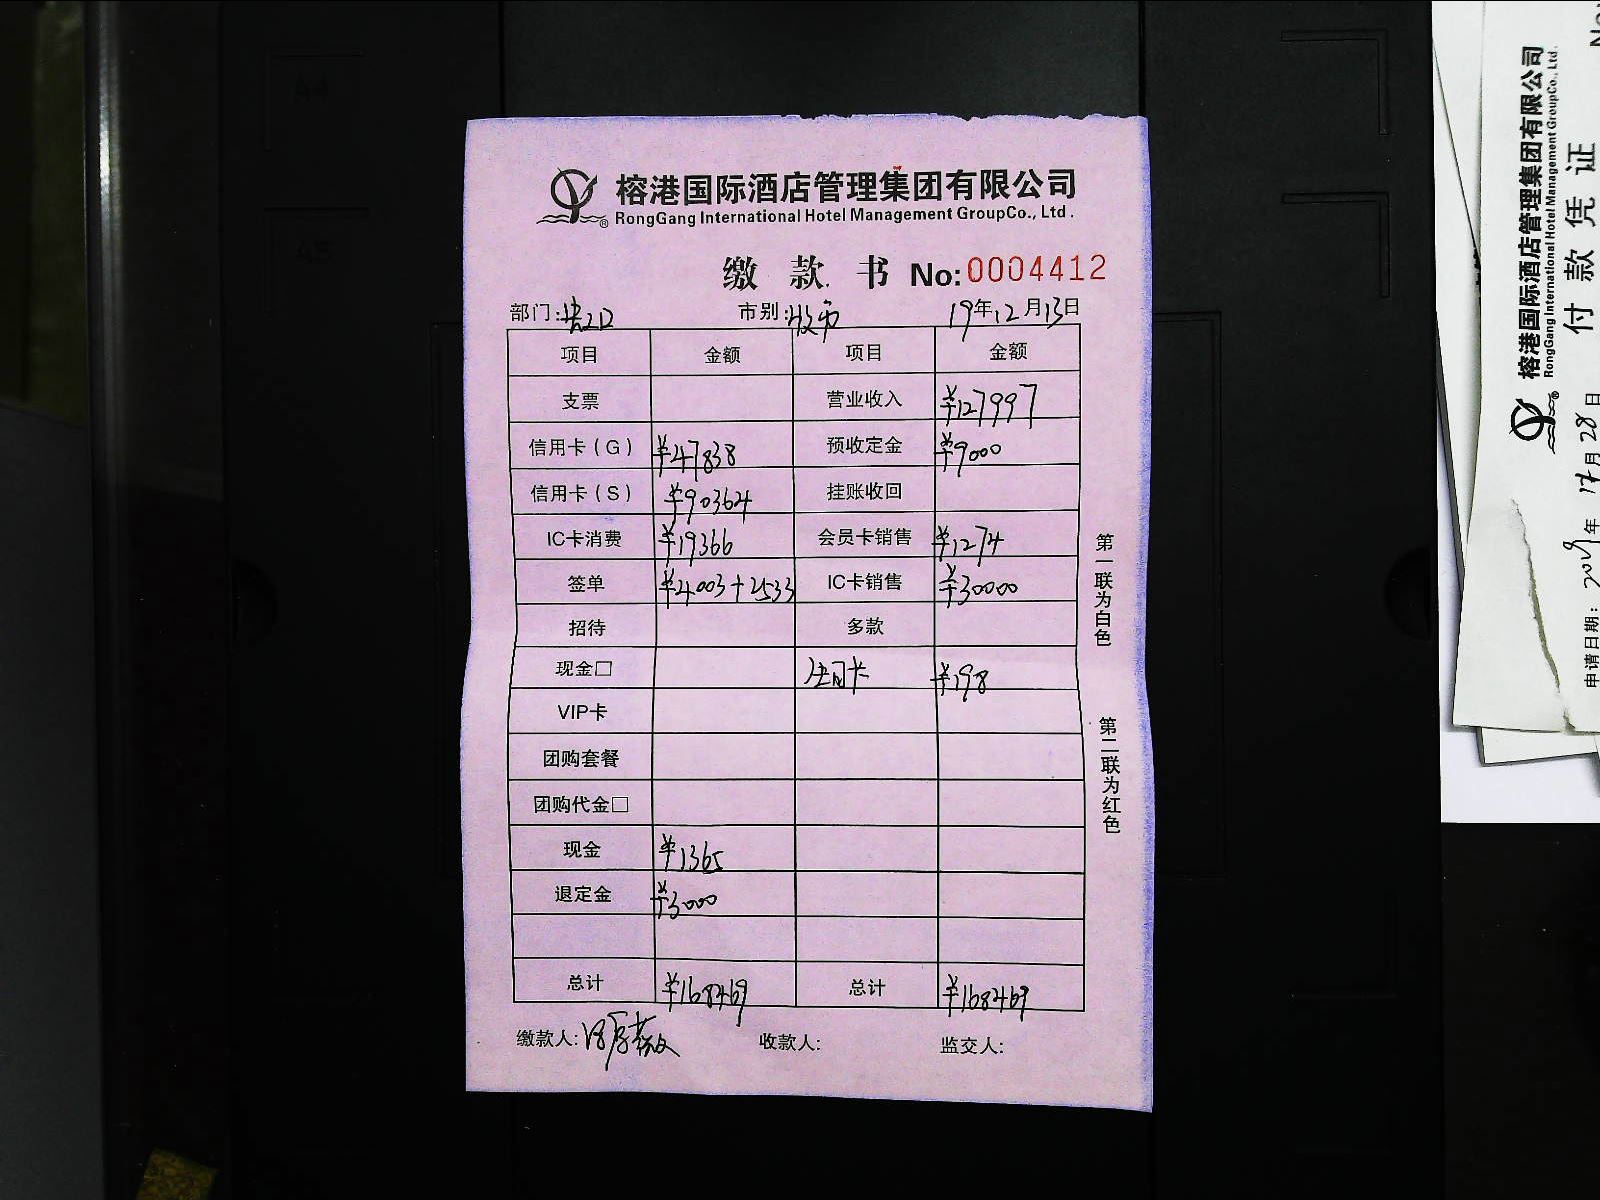 榕港国际酒店管理集团有限公司
RongGang International Hotel Management GroupCo., Ltd.
缴款书 No:0004412
部门: 市别: 19年12月13日
项目 金额 项目 金额
支票 营业收入 ¥127997
信用卡(G) ¥47838 预收定金 ¥9000
信用卡(S) ¥90364 挂账收回
IC卡消费 ¥19366 会员卡销售 ¥1274
签单 ¥4003+2533 IC卡销售 ¥30000
招待 多款
现金□ ¥198
VIP卡
团购套餐
团购代金□
现金 ¥1365
退定金 ¥3000
总计 ¥168469 总计 ¥168469
缴款人: 收款人: 监交人:
第一联为白色
第二联为红色
榕港国际酒店管理集团有限公司
RongGang International Hotel Management GroupCo., Ltd.
付款凭证
申请日期: 2019年 月28日
A4
A5